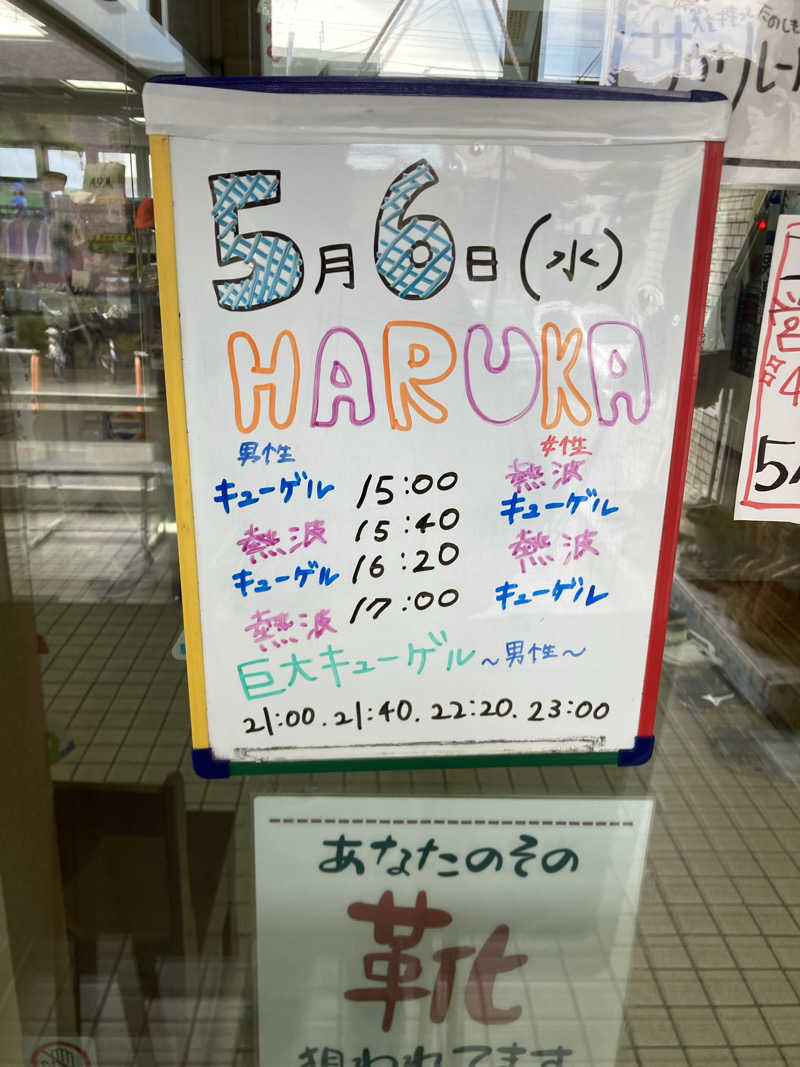 5月6日(水)
HARUKA
男性 女性
キューゲル 15:00 熱波
熱波 15:40 キューゲル
キューゲル 16:20 熱波
熱波 17:00 キューゲル
巨大キューゲル～男性～
21:00.21:40.22:20.23:00
あなたのその
靴
狙われてます